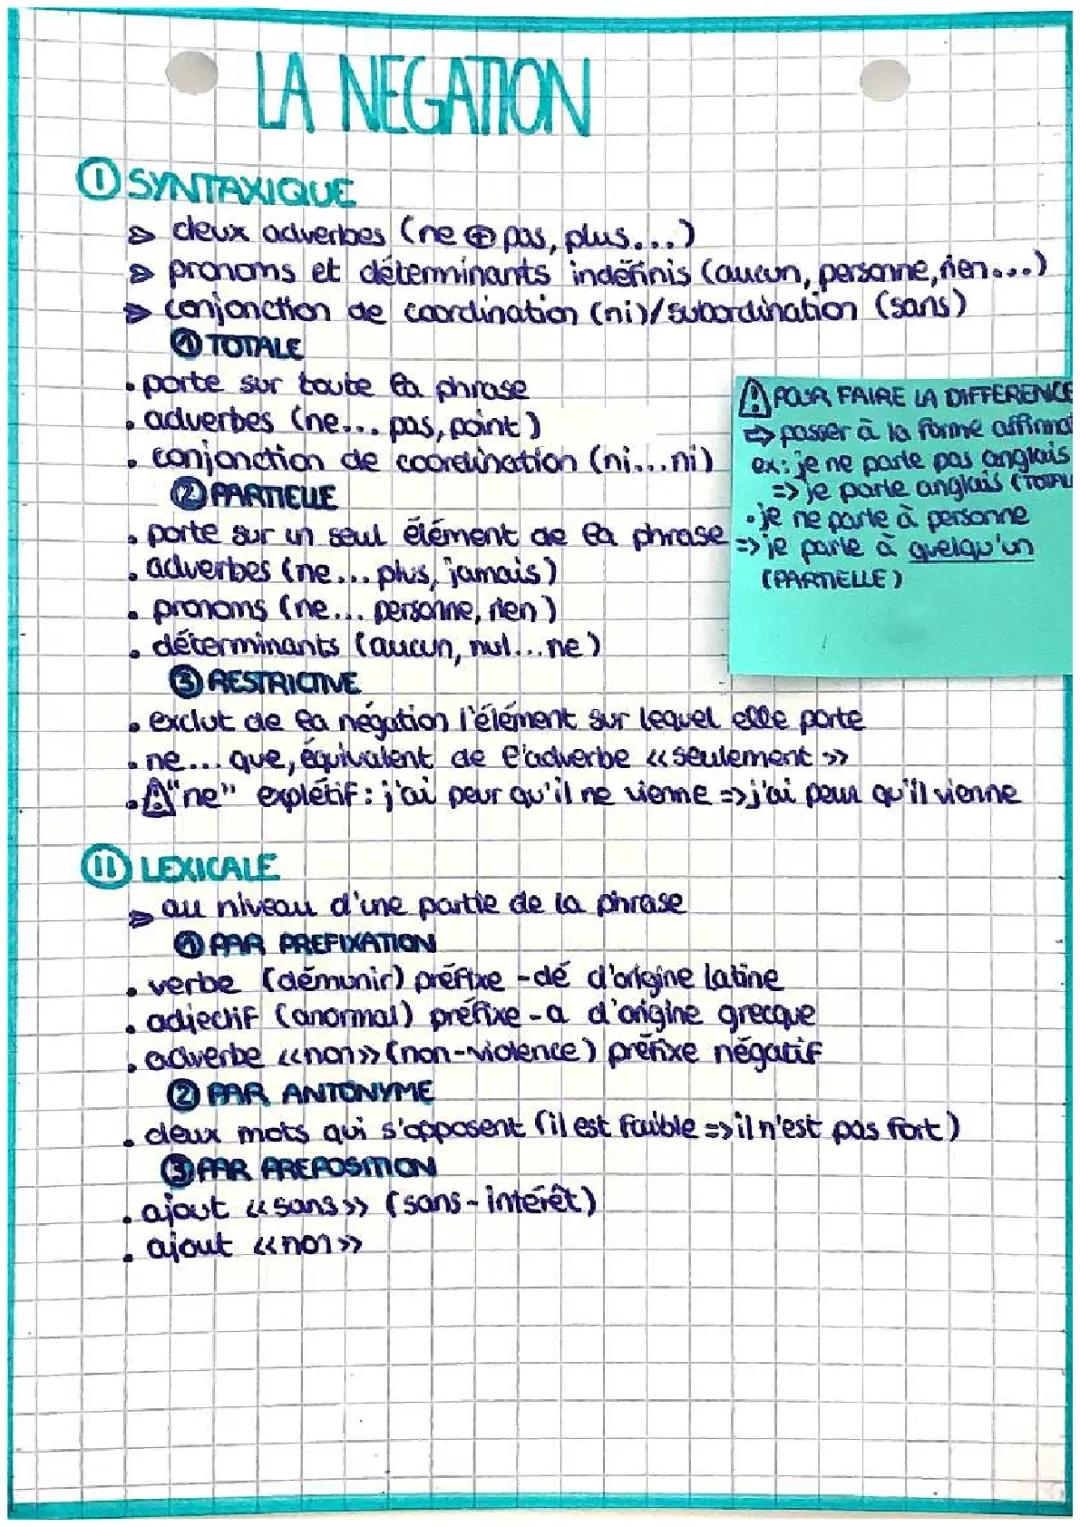 LA NEGATION
I SYNTAXIQUE
deux adverbes (ne ⊕ pas, plus...)
pronoms et déterminants indéfinis (aucun, personne, rien...)
conjonction de coordination (ni)/subordination (sans)
1 TOTALE
• porte sur toute la phrase
• adverbes (ne... pas, point)
• conjonction de coordination (ni...ni)
2 PARTIELLE
• porte sur un seul élément de la phrase
• adverbes (ne... plus, jamais)
• pronoms (ne... personne, rien)
• déterminants (aucun, nul...ne)
⚠ POUR FAIRE LA DIFFERENCE
⇒ passer à la forme affirmat
ex: je ne parle pas anglais
=> je parle anglais (TOTAL
• je ne parle à personne
=> je parle à quelqu'un
(PARTIELLE)
3 RESTRICTIVE
• exclut de la négation l'élément sur lequel elle porte
• ne... que, équivalent de l'adverbe «seulement»
• ⚠ "ne" explétif: j'ai peur qu'il ne vienne => j'ai peur qu'il vienne
II LEXICALE
au niveau d'une partie de la phrase
1 PAR PREFIXATION
• verbe (démunir) préfixe -dé d'origine latine
• adjectif (anormal) préfixe -a d'origine grecque
• adverbe «non» (non-violence) préfixe négatif
2 PAR ANTONYME
• deux mots qui s'opposent (il est faible => il n'est pas fort)
3 PAR PREPOSITION
• ajout «sans» (sans-intérêt)
• ajout «non»